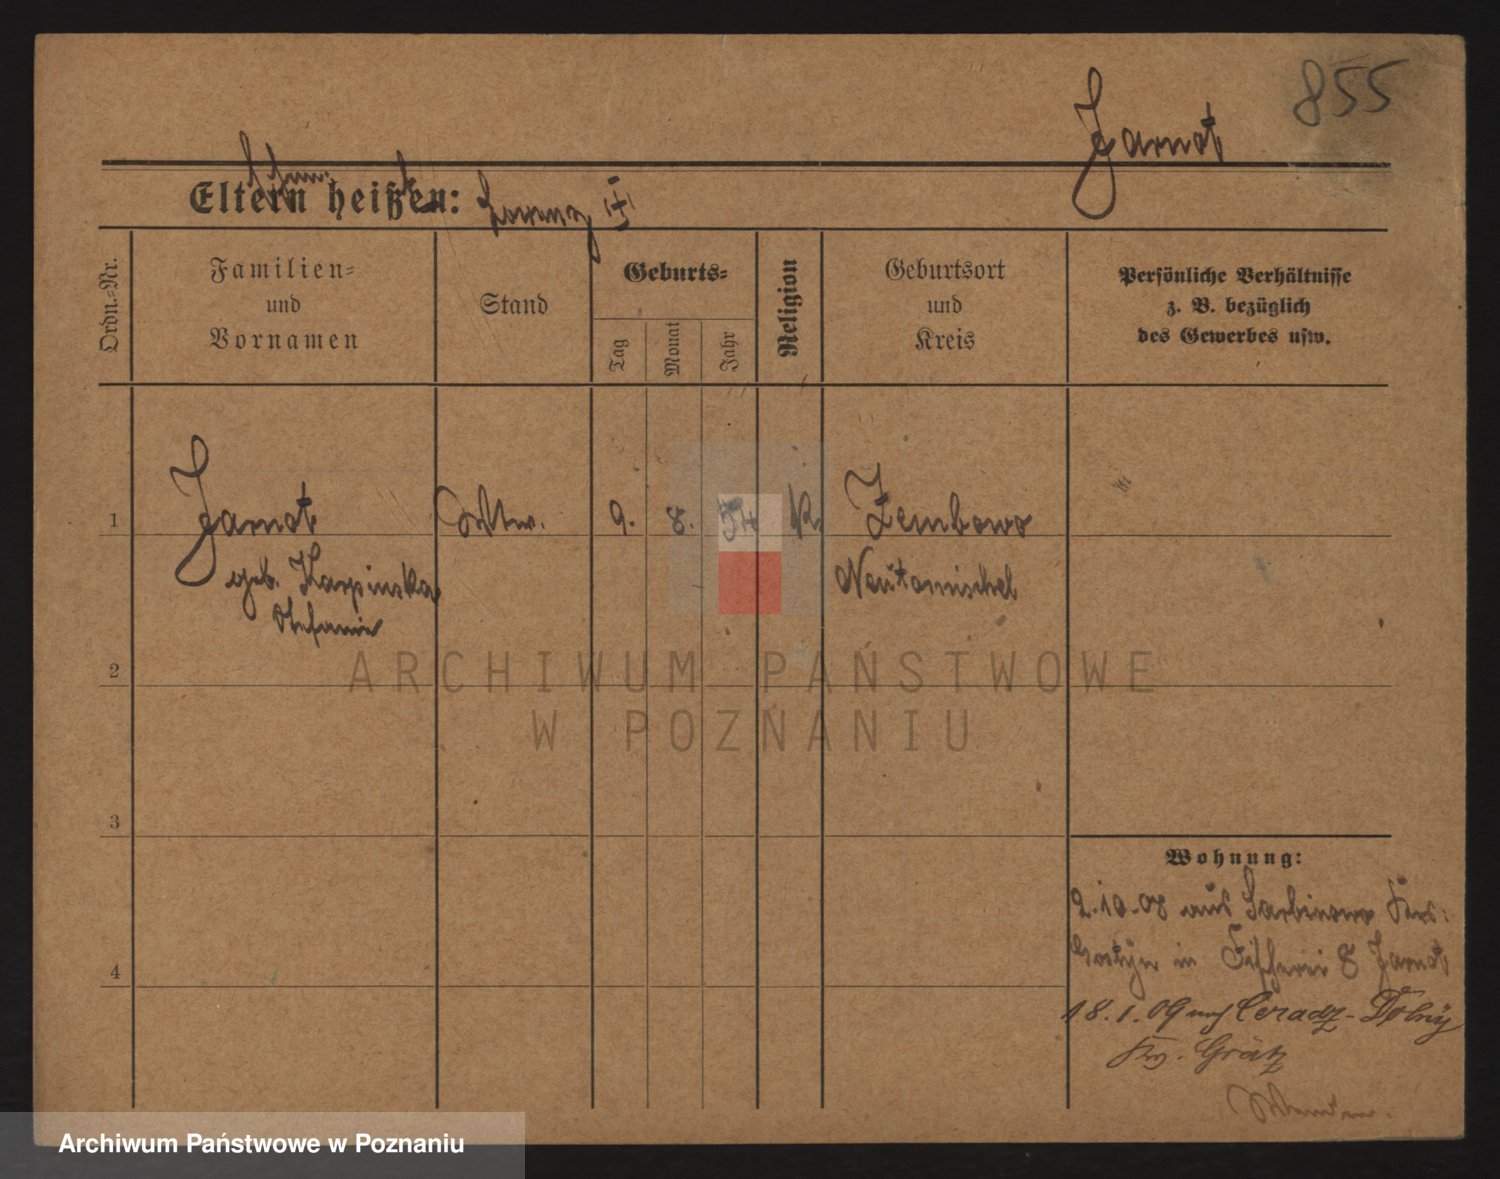 855
Jarnot
Eltern heißen: Lorenz
Ordn.-Nr.
Familien-
und
Vornamen
Stand
Geburts-
Tag
Monat
Jahr
Religion
Geburtsort
und
Kreis
Persönliche Verhältnisse
z. B. bezüglich
des Gewerbes usw.
1
Jarnot
9.
8.
54
k.
Zembowo
geb. Karpinska
Neutomischel
Stefanie
2
ARCHIWUM PAŃSTWOWE
W POZNANIU
3
Wohnung:
2.10.08 aus Sarbinowo Krs:
Gostyn in Fischerei 8 Jarnot
4
18.1.09 nach Ceradz-Dolny
Krs. Grätz
Archiwum Państwowe w Poznaniu